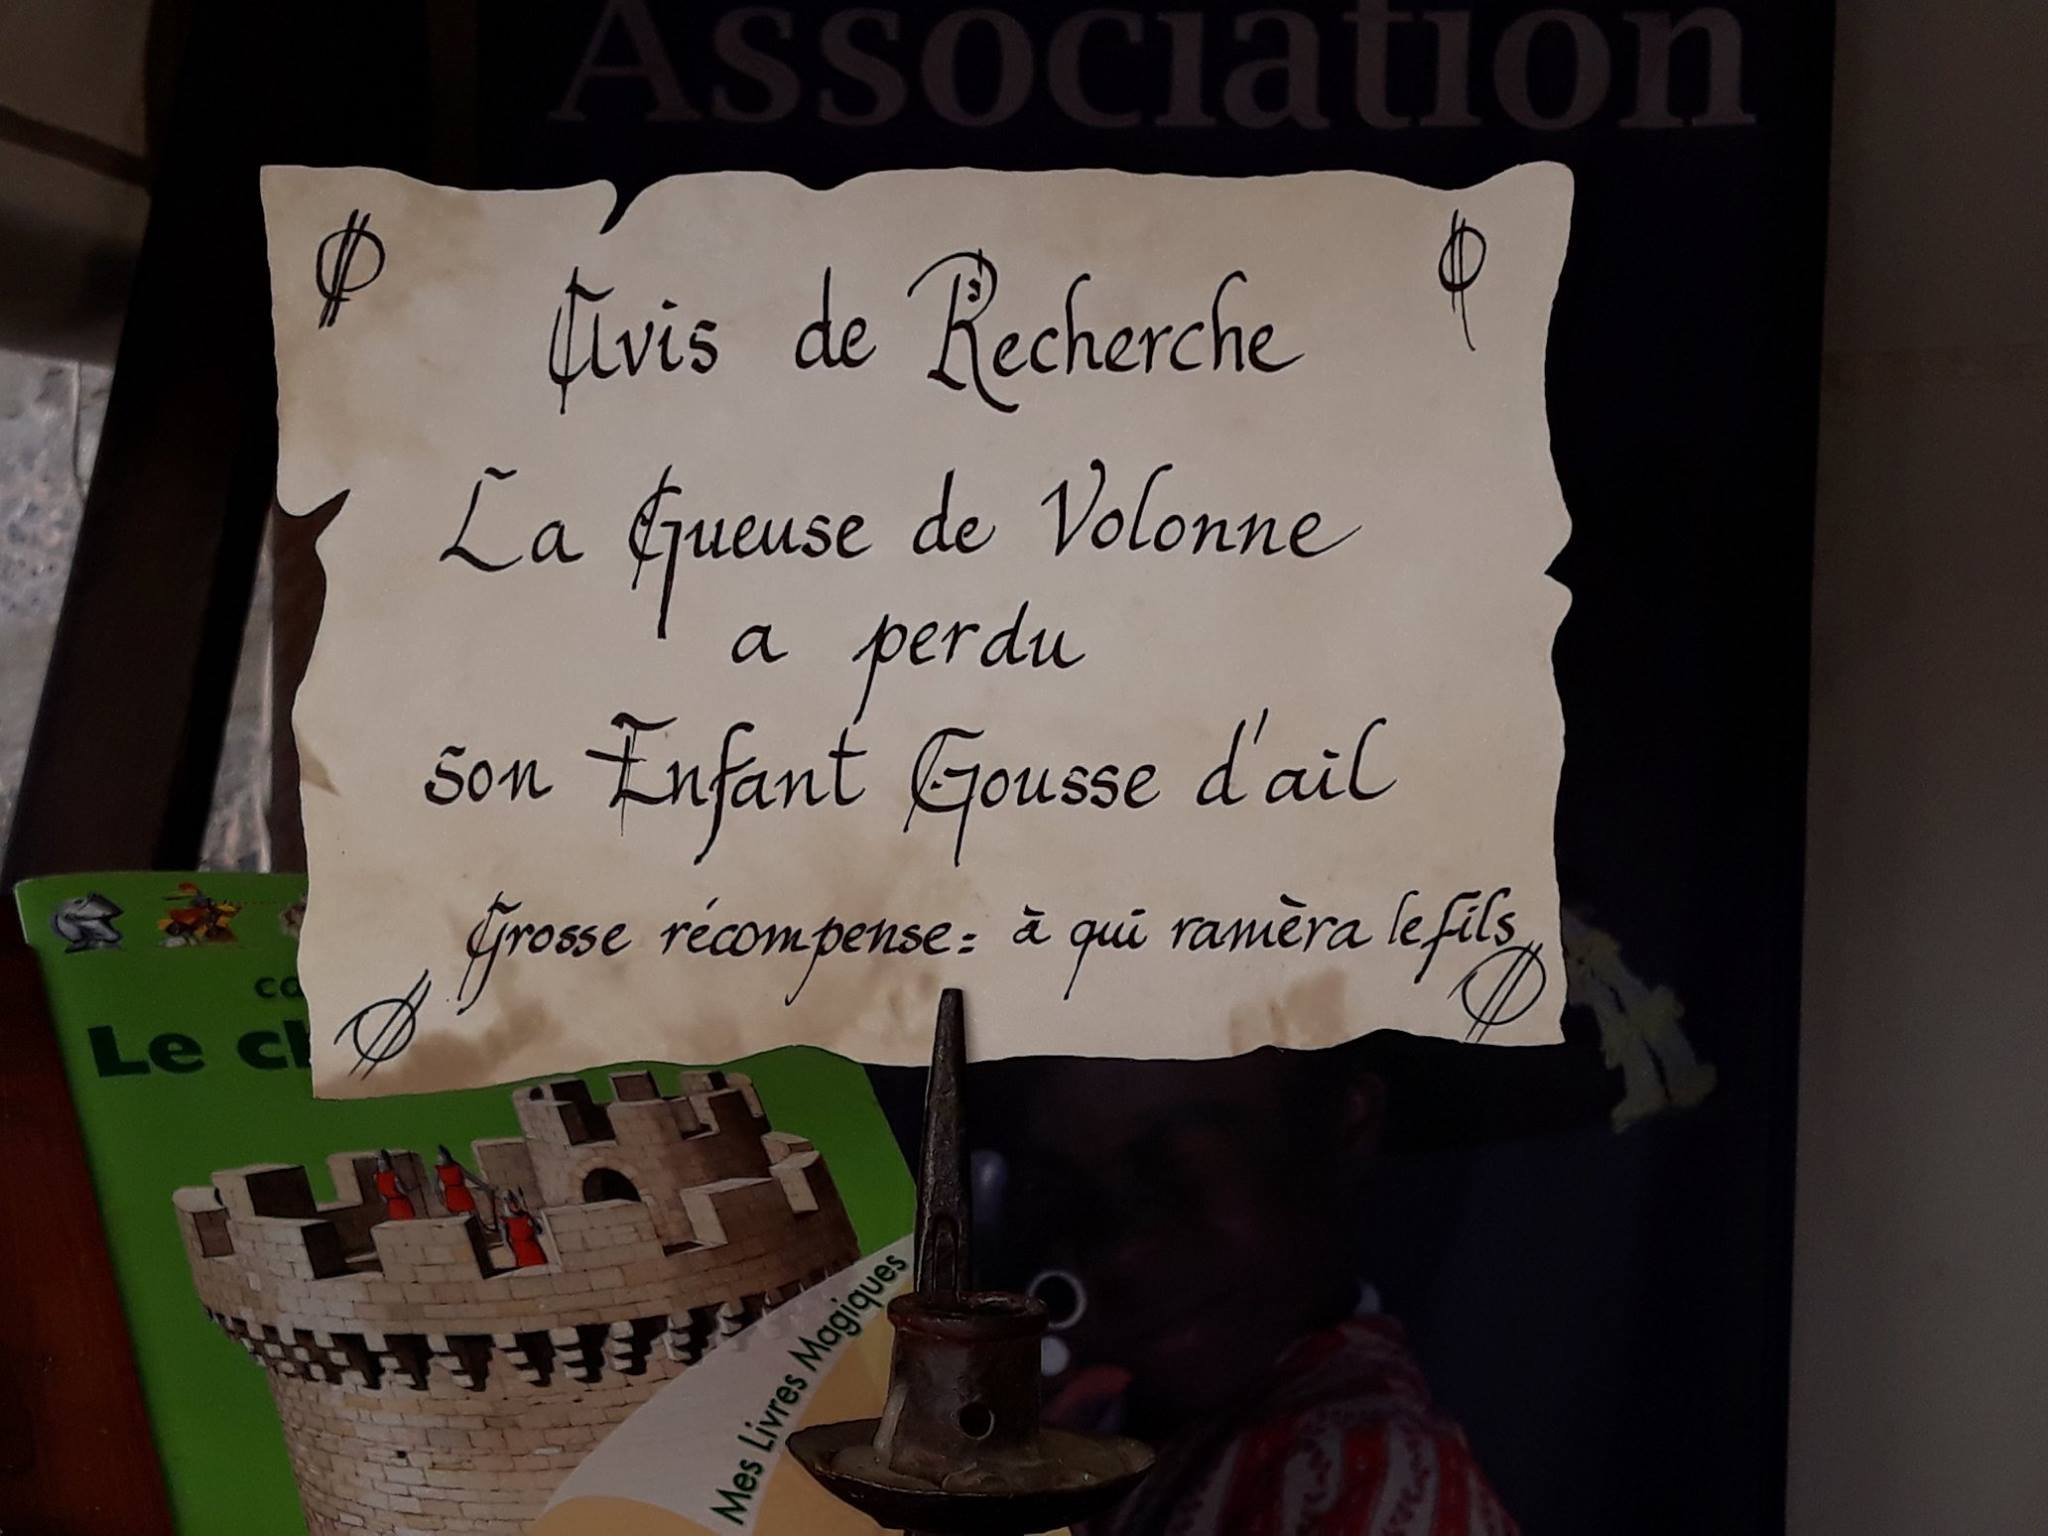 Association
Avis de Recherche
La Gueuse de Volonne
a perdu
son Enfant Gousse d'ail
Grosse récompense: à qui ramèra le fils
Le ch
Mes Livres Magiques